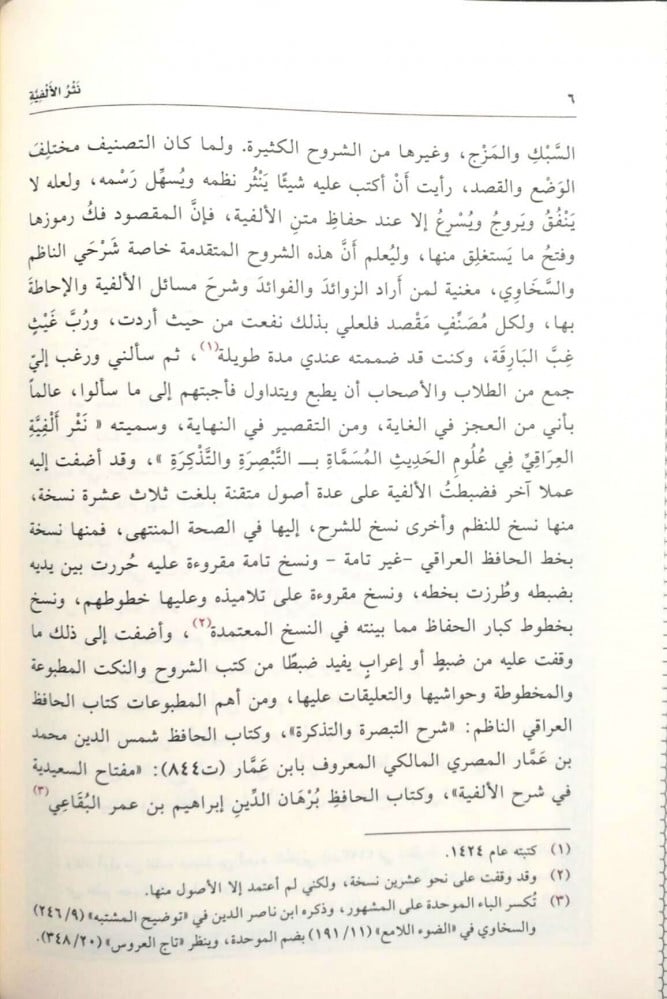 ٦
نَثْرُ الأَلْفِيَّةِ
السَّبْكِ والمَزْج، وغيرها من الشروح الكثيرة. ولما كان التصنيف مختلِفَ
الوَضْع والقصد، رأيت أَنْ أكتب عليه شيئًا يَنْثُر نظمه ويُسهِّل رَسْمه، ولعله لا
يَنْفُقُ ويَروجُ ويُسْرِعُ إلا عند حفاظِ متنِ الألفية، فإنَّ المقصود فكُ رموزها
وفتحُ ما يَستغلِق منها، وليُعلم أَنَّ هذه الشروح المتقدمة خاصة شَرْحَي الناظم
والسَّخَاوِي، مغنية لمن أَراد الزوائدَ والفوائدَ وشرحَ مسائل الألفية والإحاطةَ
بها، ولكل مُصَنِّفٍ مَقْصد فلعلي بذلك نفعت من حيث أردت، ورُبَّ غَيْثٍ
غِبَّ البَارِقَة، وكنت قد ضممته عندي مدة طويلة(١)، ثم سألني ورغب إليّ
جمع من الطلاب والأصحاب أن يطبع ويتداول فأجبتهم إلى ما سألوا، عالماً
بأني من العجز في الغاية، ومن التقصير في النهاية، وسميته « نَثْر أَلْفِيَّةِ
العِرَاقِيِّ فِي عُلُومِ الحَدِيثِ المُسَمَّاةِ بـــ التَّبْصِرَةِ والتَّذْكِرَةِ »، وقد أضفت إليه
عملا آخر فضبطتُ الألفية على عدة أصول متقنة بلغت ثلاث عشرة نسخة،
منها نسخ للنظم وأخرى نسخ للشرح، إليها في الصحة المنتهى، فمنها نسخة
بخط الحافظ العراقي -غير تامة - ونسخ تامة مقروءة عليه حُررت بين يديه
بضبطه وطُرزت بخطه، ونسخ مقروءة على تلاميذه وعليها خطوطهم، ونسخ
بخطوط كبار الحفاظ مما بينته في النسخ المعتمدة(٢)، وأضفت إلى ذلك ما
وقفت عليه من ضبطٍ أو إعرابٍ يفيد ضبطًا من كتب الشروح والنكت المطبوعة
والمخطوطة وحواشيها والتعليقات عليها، ومن أهم المطبوعات كتاب الحافظ
العراقي الناظم: «شرح التبصرة والتذكرة»، وكتاب الحافظ شمس الدين محمد
بن عَمَّار المصري المالكي المعروف بابن عَمَّار (ت٨٤٤): «مفتاح السعيدية
في شرح الألفية»، وكتاب الحافظِ بُرْهَان الدِّينِ إبراهيم بن عمر البُقَاعِي(٣)
(١) كتبته عام ١٤٢٤.
(٢) وقد وقفت على نحو عشرين نسخة، ولكني لم أعتمد إلا الأصول منها.
(٣) تُكسر الباء الموحدة على المشهور، وذكره ابن ناصر الدين في «توضيح المشتبه» (٢٤٦/٩)
والسخاوي في «الضوء اللامع» (١٩١/١١) بضم الموحدة، وينظر «تاج العروس» (٣٤٨/٢٠).